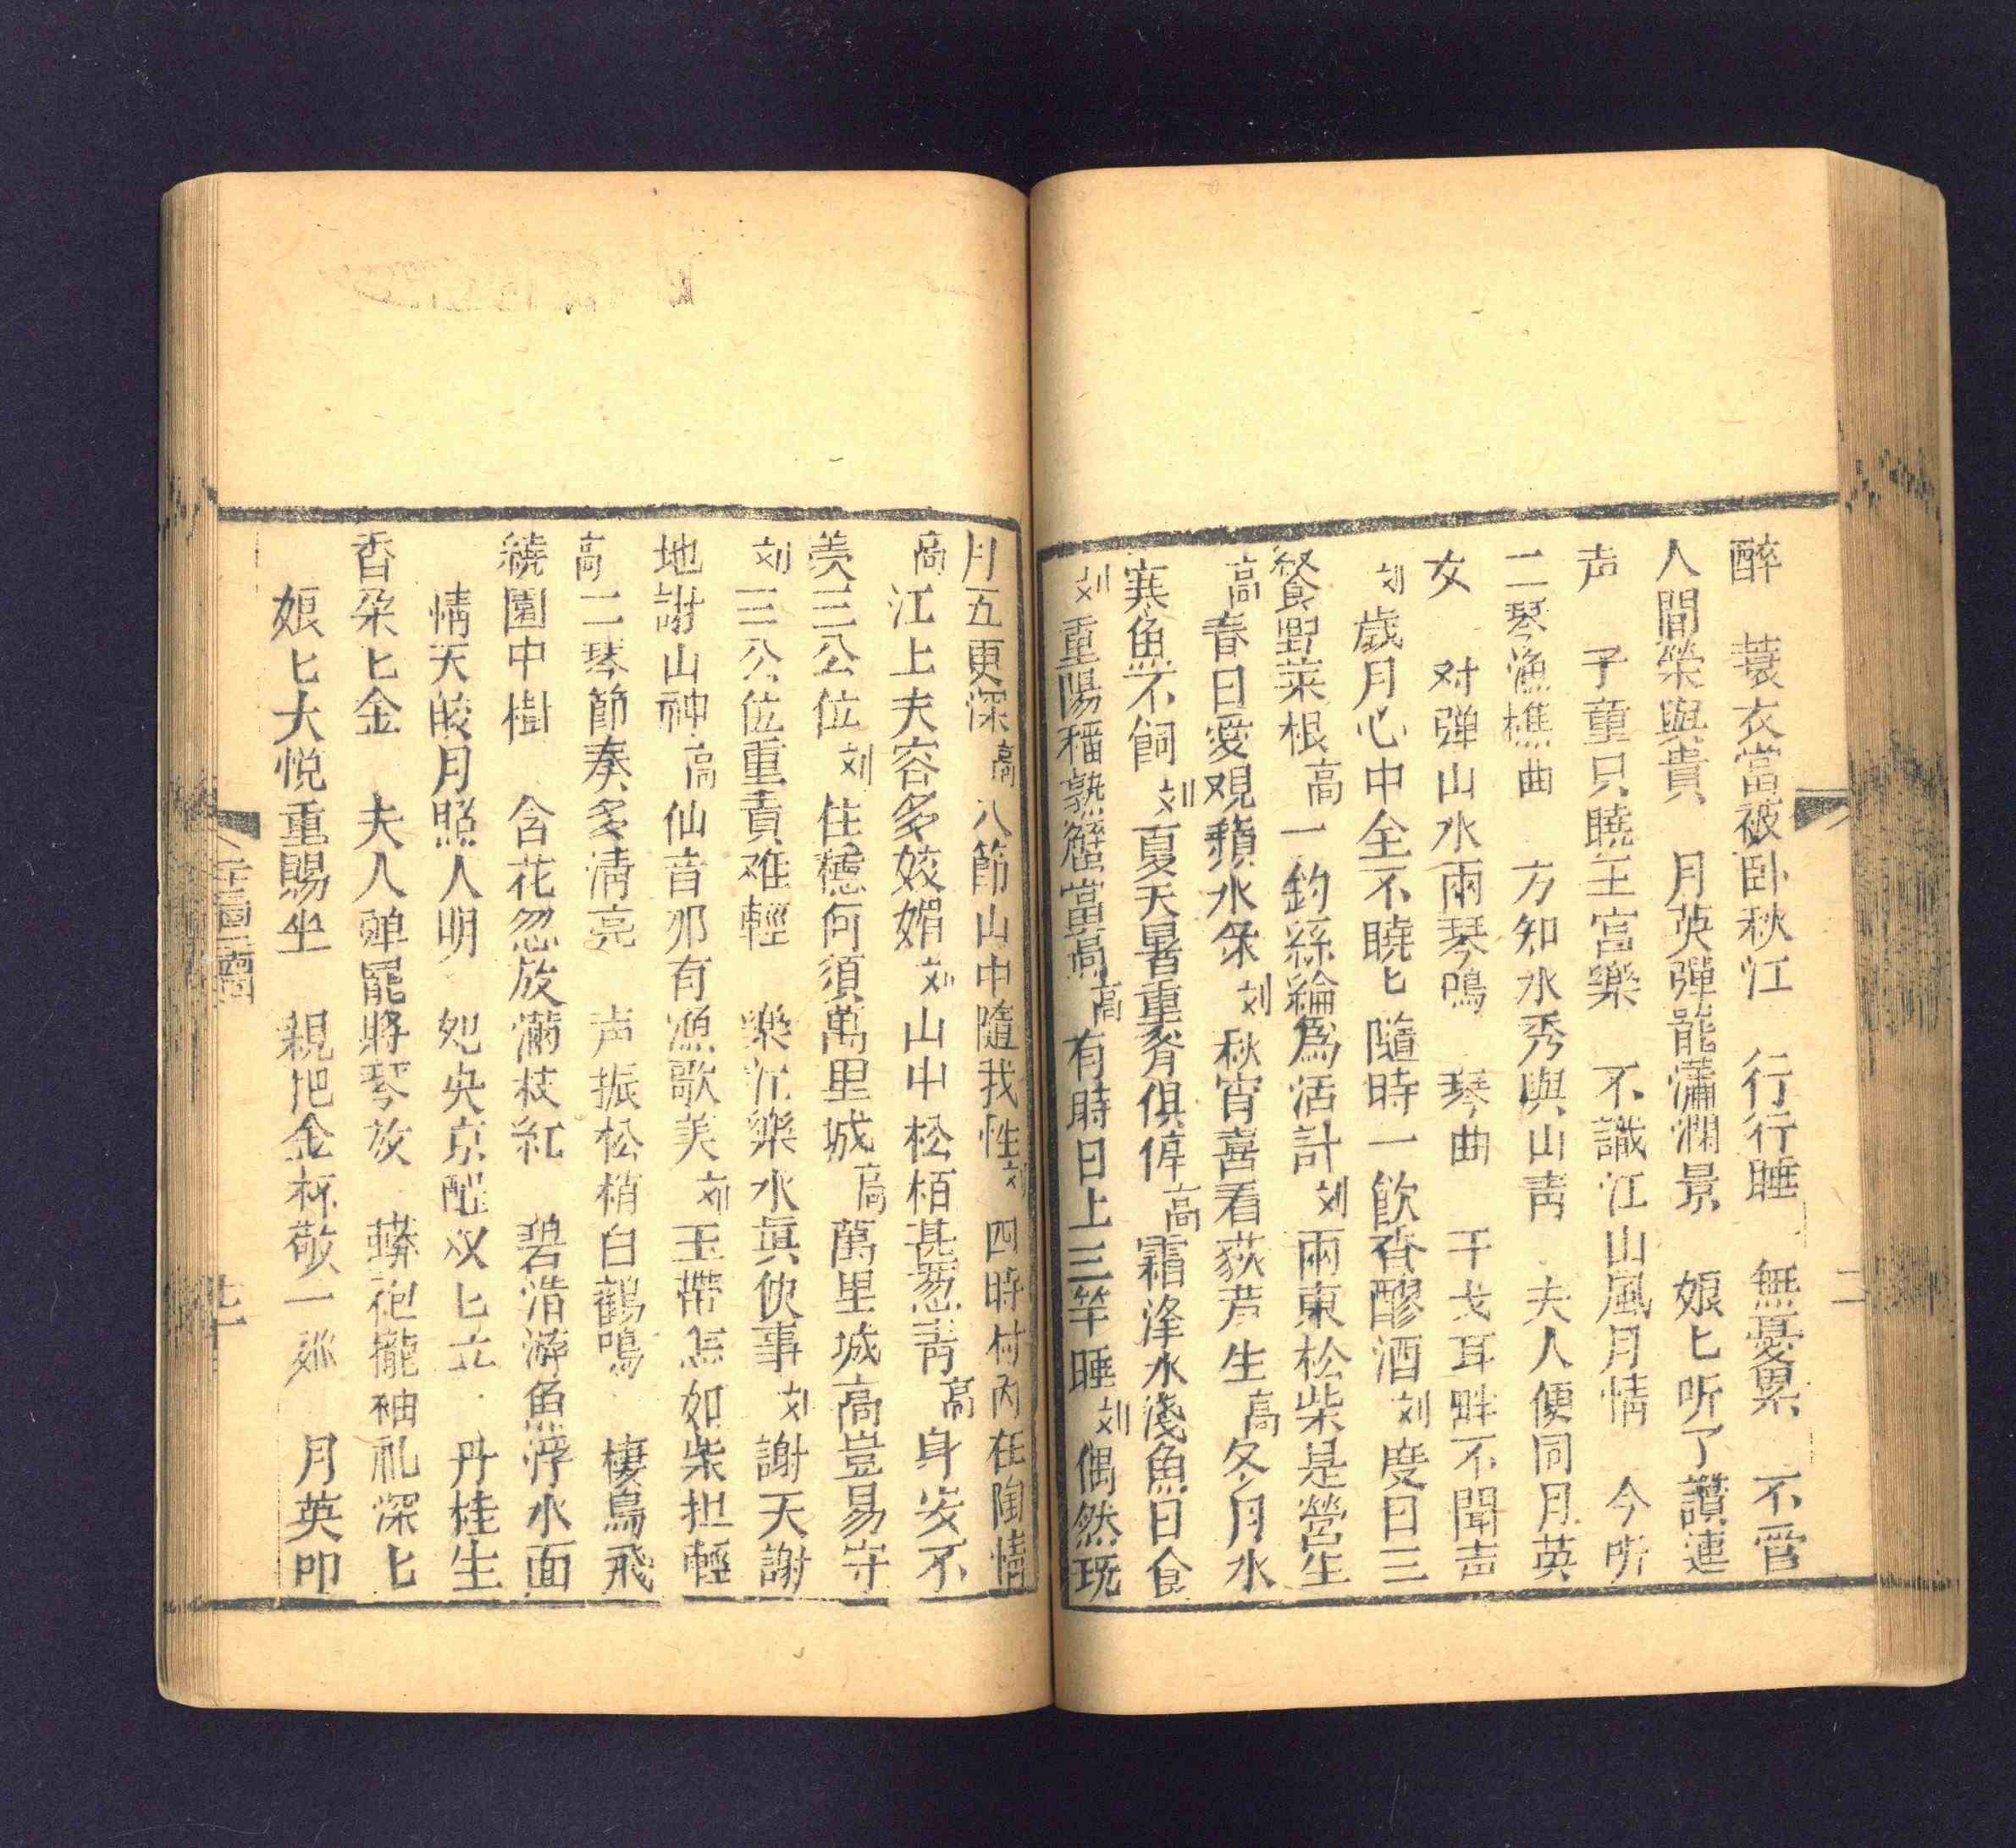 醉　蓑衣當被卧秋江　行行睡　無憂累　不管
人間榮與貴　月英彈罷瀟湘景　娘匕听了讚連
声　子童只曉王宫樂　不識江山風月情　今听
二琴漁樵曲　方知水秀與山青　夫人便同月英
女　对弹山水兩琴鳴　琴曲　干戈耳畔不聞声
刘歲月心中全不曉匕隨時一飲香醪酒刘度日三
餐野菜根高一鈎絲綸為活計刘兩束松柴是營生
高春日愛观蘋水朵刘秋宵喜看荻芦生高冬月水
寒魚不餌刘夏天暑重脊俱俥高霜洚水淺魚日食
刘重陽稲熟蟹當高高有時日上三竿睡刘偶然玩
月五更深高八節山中隨我性刘四時村内在陶情
高江上夫容多姣媚刘山中松栢甚葱青高身安不
羡三公位刘住穩何須萬里城高萬里城高豈易守
刘三公位重責难輕　樂江樂水眞使事刘謝天謝
地謝山神高仙音那有漁歌美刘玉帶怎如柴担輕
高二琴節奏多淸亮　声振松梢白鶴鳴　棲鳥飛
繞園中樹　含花忽放滿枝紅　碧浩游魚浮水面
情天皎月照人明　央京　双匕立　丹桂生
香朵匕金　夫人彈罷將琴放　蟒袍攏袖礼深匕
娘匕大悅重賜坐　親把金杯敬一　月英叩